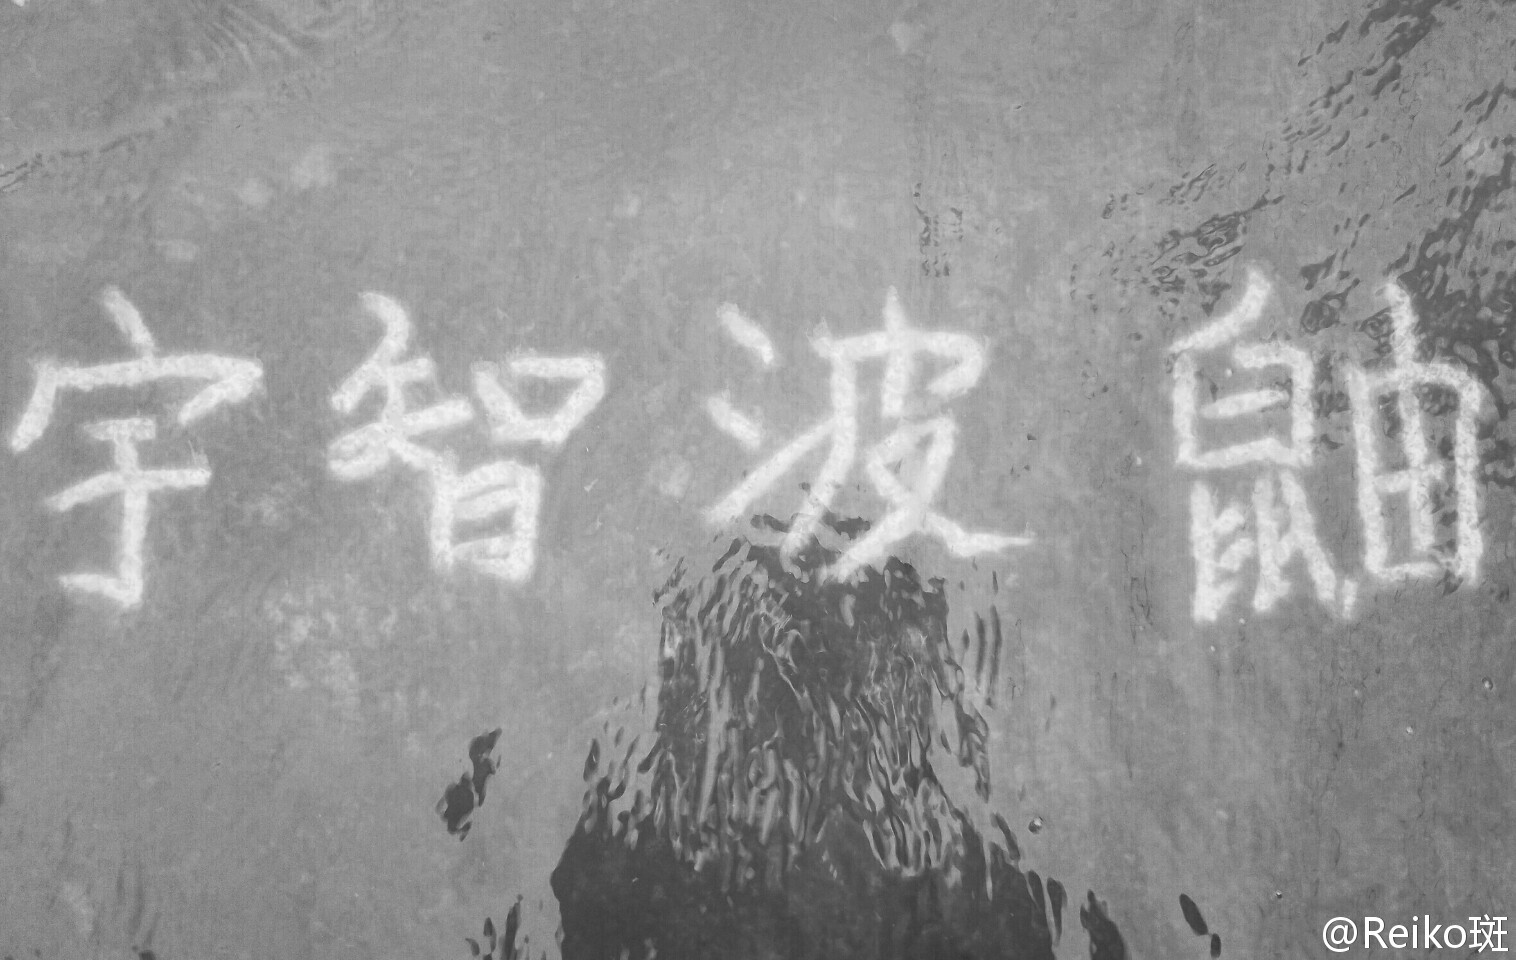 宇智波鼬
@Reiko斑